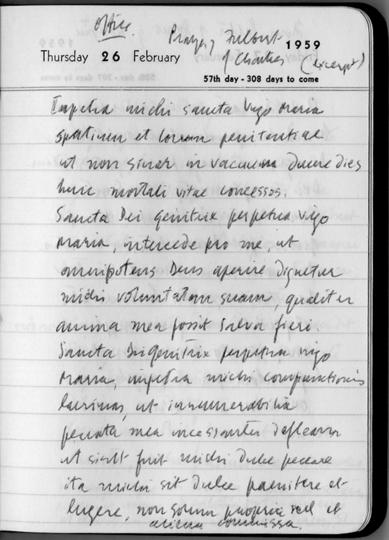 Office
Prayer of Fulbert
of Chartres (excerpt)
1959
Thursday 26 February
57th day - 308 days to come
Impetra michi sancta Virgo Maria
spatium et locum penitentiae
ut non sinar in vacuum ducere dies
huic mortali vitae concessos.
Sancta Dei genitrix perpetua virgo
Maria, intercede pro me, ut
omnipotens Deus aperire dignetur
michi voluntatem suam, qualiter
anima mea possit salva fieri.
Sancta Dei genitrix perpetua virgo
Maria, impetra michi compunctionis
lacrimas, ut innumerabilia
peccata mea incessanter defleam
ut sicut fuit michi dulce peccare
ita michi sit dulce paenitere et
lugere, non solum propria sed et
aliena commissa.